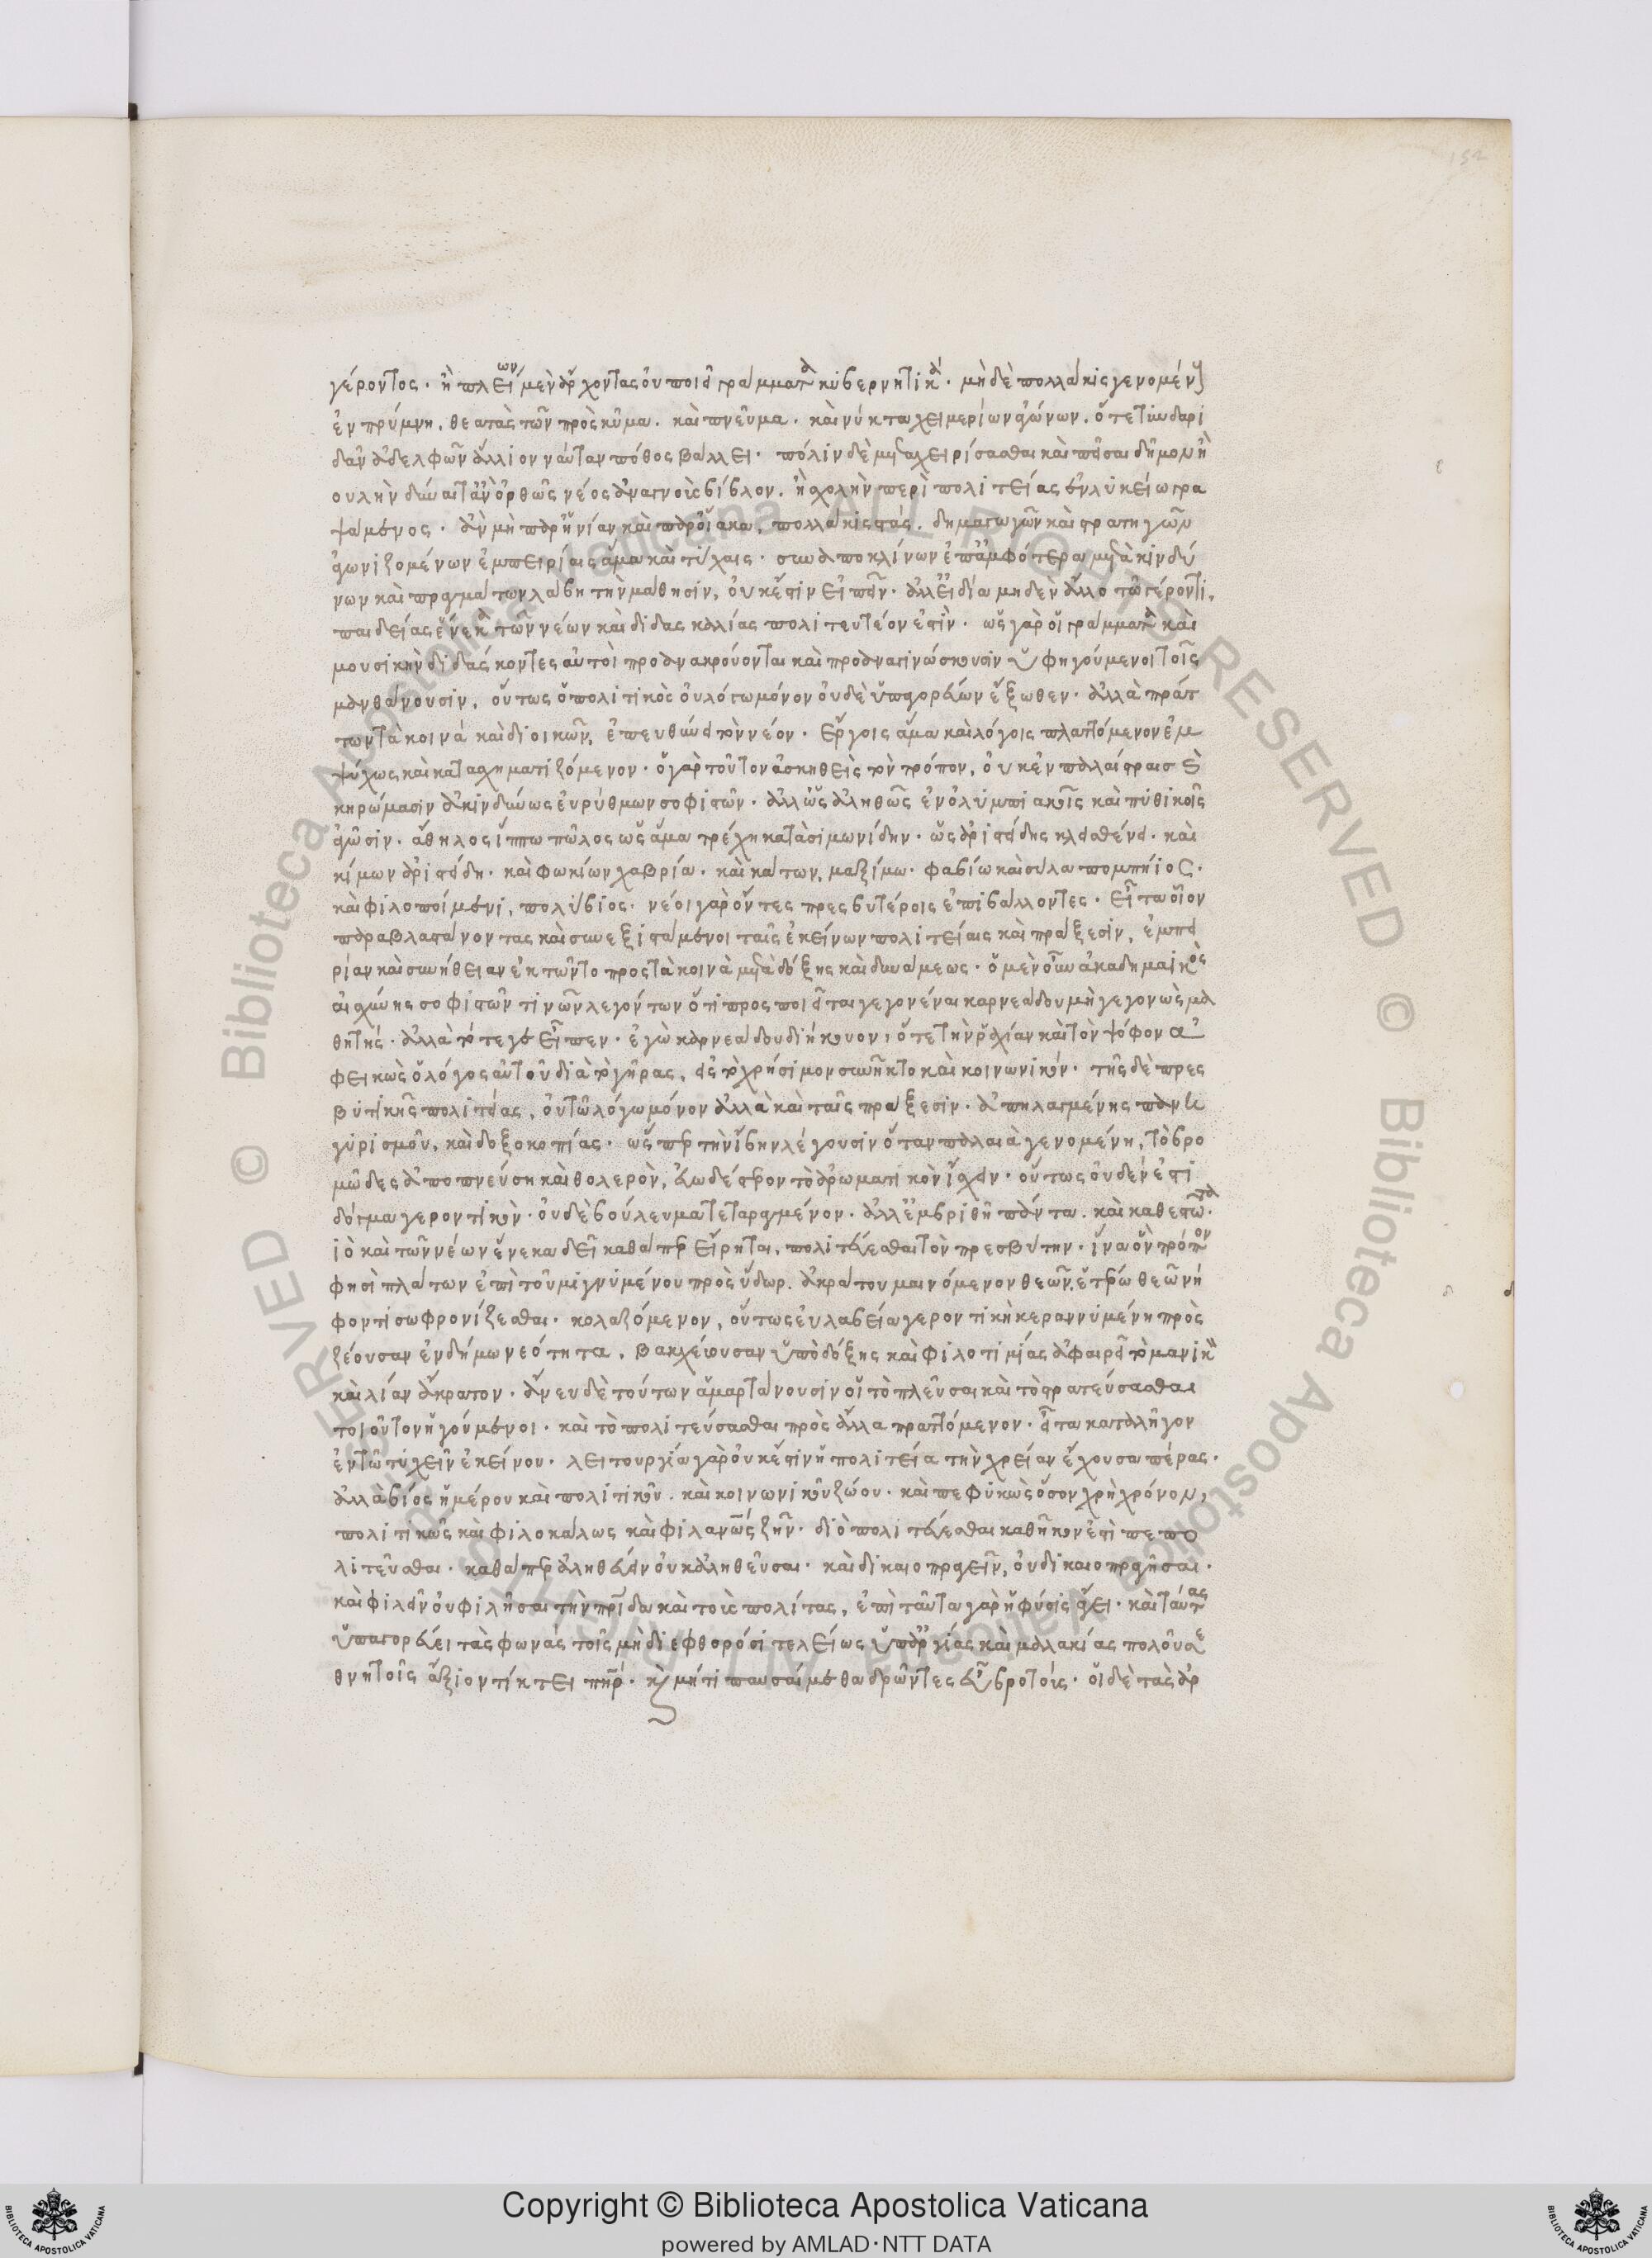 152
γέροντος. ἢ πλείων μὲν ἄρχοντας οὐ ποιεῖ γράμματα κυβερνητικά. μὴ δὲ πολλάκις γενομένους
ἐν πρύμνη. θεατὰς τῶν πρὸς κῦμα. καὶ πνεῦμα. καὶ νύκτα χειμερίων ἀγώνων. ὅτε τυνδαρι
δᾶν ἀδελφῶν ἅλιον ναύταν πόθος βάλλει. πόλιν δὲ μεταχειρίσασθαι καὶ πεῖσαι δῆμον ἢ
βουλὴν δύναιτ' ἂν ὀρθῶς νέος ἀναγνοὺς βίβλον. ἢ σχολὴν περὶ πολιτείας ἐν λυκείω γρα
ψάμενος. ἂν μὴ παρ' ἡνίαν καὶ παρ' οἴακα, πολλάκις στάς. δημαγωγῶν καὶ στρατηγῶν
ἀγωνιζομένων ἐμπειρίαις ἅμα καὶ τύχαις. συναποκλίνων ἐπ' ἀμφότερα μετὰ κινδύ
νων καὶ πραγμάτων λάβη τὴν μάθησιν, οὐκ ἔστιν εἰπεῖν. ἀλλ' εἰ διὰ μηδὲν ἄλλο τῶ γέροντι,
παιδείας ἕνεκα τῶν νέων καὶ διδασκαλίας πολιτευτέον ἐστὶν. ὡς γὰρ οἱ γράμματα καὶ
μουσικὴν διδάσκοντες αὐτοὶ προανακρούονται καὶ προαναγινώσκουσιν ὑφηγούμενοι τοῖς
μανθάνουσιν, οὕτως ὁ πολιτικὸς οὐ λόγω μόνον οὐδὲ ὑπαγορεύων ἔξωθεν. ἀλλὰ πράτ
των τὰ κοινὰ καὶ διοικῶν, ἐπευθύνει τὸν νέον. ἔργοις ἅμα καὶ λόγοις πλαττόμενον ἐμ
ψύχως καὶ κατασχηματιζόμενον. ὁ γὰρ τοῦτον ἀσκηθεὶς τὸν τρόπον, οὐκ ἐν παλαίστραις καὶ
κηρώμασιν ἀκινδύνως εὐρύθμων σοφιστῶν. ἀλλ' ὡς ἀληθῶς ἐν ὀλυμπιακοῖς καὶ πυθικοῖς
ἀγῶσιν. ἄθηλος ἵππω πῶλος ὡς ἅμα τρέχη κατὰ σιμωνίδην. ὡς ἀριστείδης κλεισθένει. καὶ
κίμων ἀριστείδη. καὶ φωκίων χαβρία. καὶ κάτων, μαξίμω. φαβίω καὶ σύλα πομπήιος.
καὶ φιλοποίμενι, πολύβιος. νέοι γὰρ ὄντες πρεσβυτέροις ἐπιβάλλοντες. εἶτα οἷον
παραβλαστάνοντας καὶ συνεξιστάμενοι ταῖς ἐκείνων πολιτείαις καὶ πράξεσιν, ἐμπει
ρίαν καὶ συνήθειαν ἐκτῶντο πρὸς τὰ κοινὰ μετὰ δόξης καὶ δυνάμεως. ὁ μὲν οὖν ἀκαδημαικὸς
αἰσχύνης σοφιστῶν τινῶν λεγόντων ὅτι προσποιεῖται γεγονέναι καρνεάδου μὴ γεγονὼς μα
θητής. ἀλλὰ τότε γε εἶπεν. ἐγὼ καρνεάδου διήκουον, ὅτε τὴν ῥαχίαν καὶ τὸν ψόφον ἀ
φεικὼς ὁ λόγος αὐτοῦ διὰ τὸ γῆρας, εἰς τὸ χρήσιμον συνῆκτο καὶ κοινωνικόν. τῆς δὲ πρεσ
βυτικῆς πολιτείας, οὐ τῶ λόγω μόνον ἀλλὰ καὶ ταῖς πράξεσιν. ἀπηλαγμένης πανη
γυρισμοῦ, καὶ δοξοκοπίας. ὥσπερ τὴν ἶβην λέγουσιν ὅταν παλαιὰ γενομένη, τὸ βρο
μῶδες ἀποπνεύση καὶ θολερὸν, εὐωδέστερον τὸ ἀρωματικὸν ἴσχειν. οὕτως οὐδέν ἐστι
δόγμα γεροντικὸν. οὐδὲ βούλευμα τεταραγμένον. ἀλλ' ἐμβριθῆ πάντα. καὶ καθεστῶτα.
ιὸ καὶ τῶν νέων ἕνεκα δεῖ καθάπερ εἴρηται, πολιτεύεσθαι τὸν πρεσβύτην. ἵνα ὃν τρόπον
φησὶ πλάτων ἐπὶ τοῦ μιγνυμένου πρὸς ὕδωρ. ἀκράτου μαινόμενον θεῶν, ἑτέρω θεῶ νή
φοντι σωφρονίζεσθαι. κολαζόμενον, οὕτως εὐλάβεια γεροντικὴ κεραννυμένη πρὸς
ζέουσαν ἐν δήμω νεότητα, βακχεύουσαν ὑπὸ δόξης καὶ φιλοτιμίας ἀφαιρεῖ τὸ μανικὸν
καὶ λίαν ἄκρατον. ἄνευ δὲ τούτων ἁμαρτάνουσιν οἱ τὸ πλεῦσαι καὶ τὸ στρατεύσασθαι
τοιοῦτον ἡγούμενοι. καὶ τὸ πολιτεύσασθαι πρὸς ἄλλα πραττόμενον. εἶτα καταλῆγον
ἐν τῶ τυχεῖν ἐκείνου. λειτουργία γὰρ οὐκ ἔστιν ἡ πολιτεία τὴν χρείαν ἔχουσα πέρας.
ἀλλὰ βίος ἡμέρου καὶ πολιτικοῦ. καὶ κοινωνικοῦ ζώου. καὶ πεφυκὼς ὅσον χρὴ χρόνον,
πολιτικῶς καὶ φιλοκάλως καὶ φιλανθρώπως ζῆν. διὸ πολιτεύεσθαι καθῆκόν ἐστὶ πεπο
λιτεῦσθαι. καθάπερ ἀληθεύειν οὐκ ἀληθεῦσαι. καὶ δικαιοπραγεῖν, οὐ δικαιοπραγῆσαι.
καὶ φιλεῖν οὐ φιλῆσαι τὴν πατρίδα καὶ τοὺς πολίτας, ἐπὶ ταῦτα γὰρ ἡ φύσις ἄγει. καὶ ταύτας
ὑπαγορεύει τὰς φωνάς τοῖς μὴ διεφθορόσι τελείως ὑπ' ἀργίας καὶ μαλακίας πολοῦ σε
θνητοῖς ἄξιον τίκτει πατήρ. καὶ μήτι παυσαίμεθα δρῶντες εὖ βροτούς. οἱ δὲ τὰς ἀρ
Copyright © Biblioteca Apostolica Vaticana
powered by AMLAD·NTT DATA